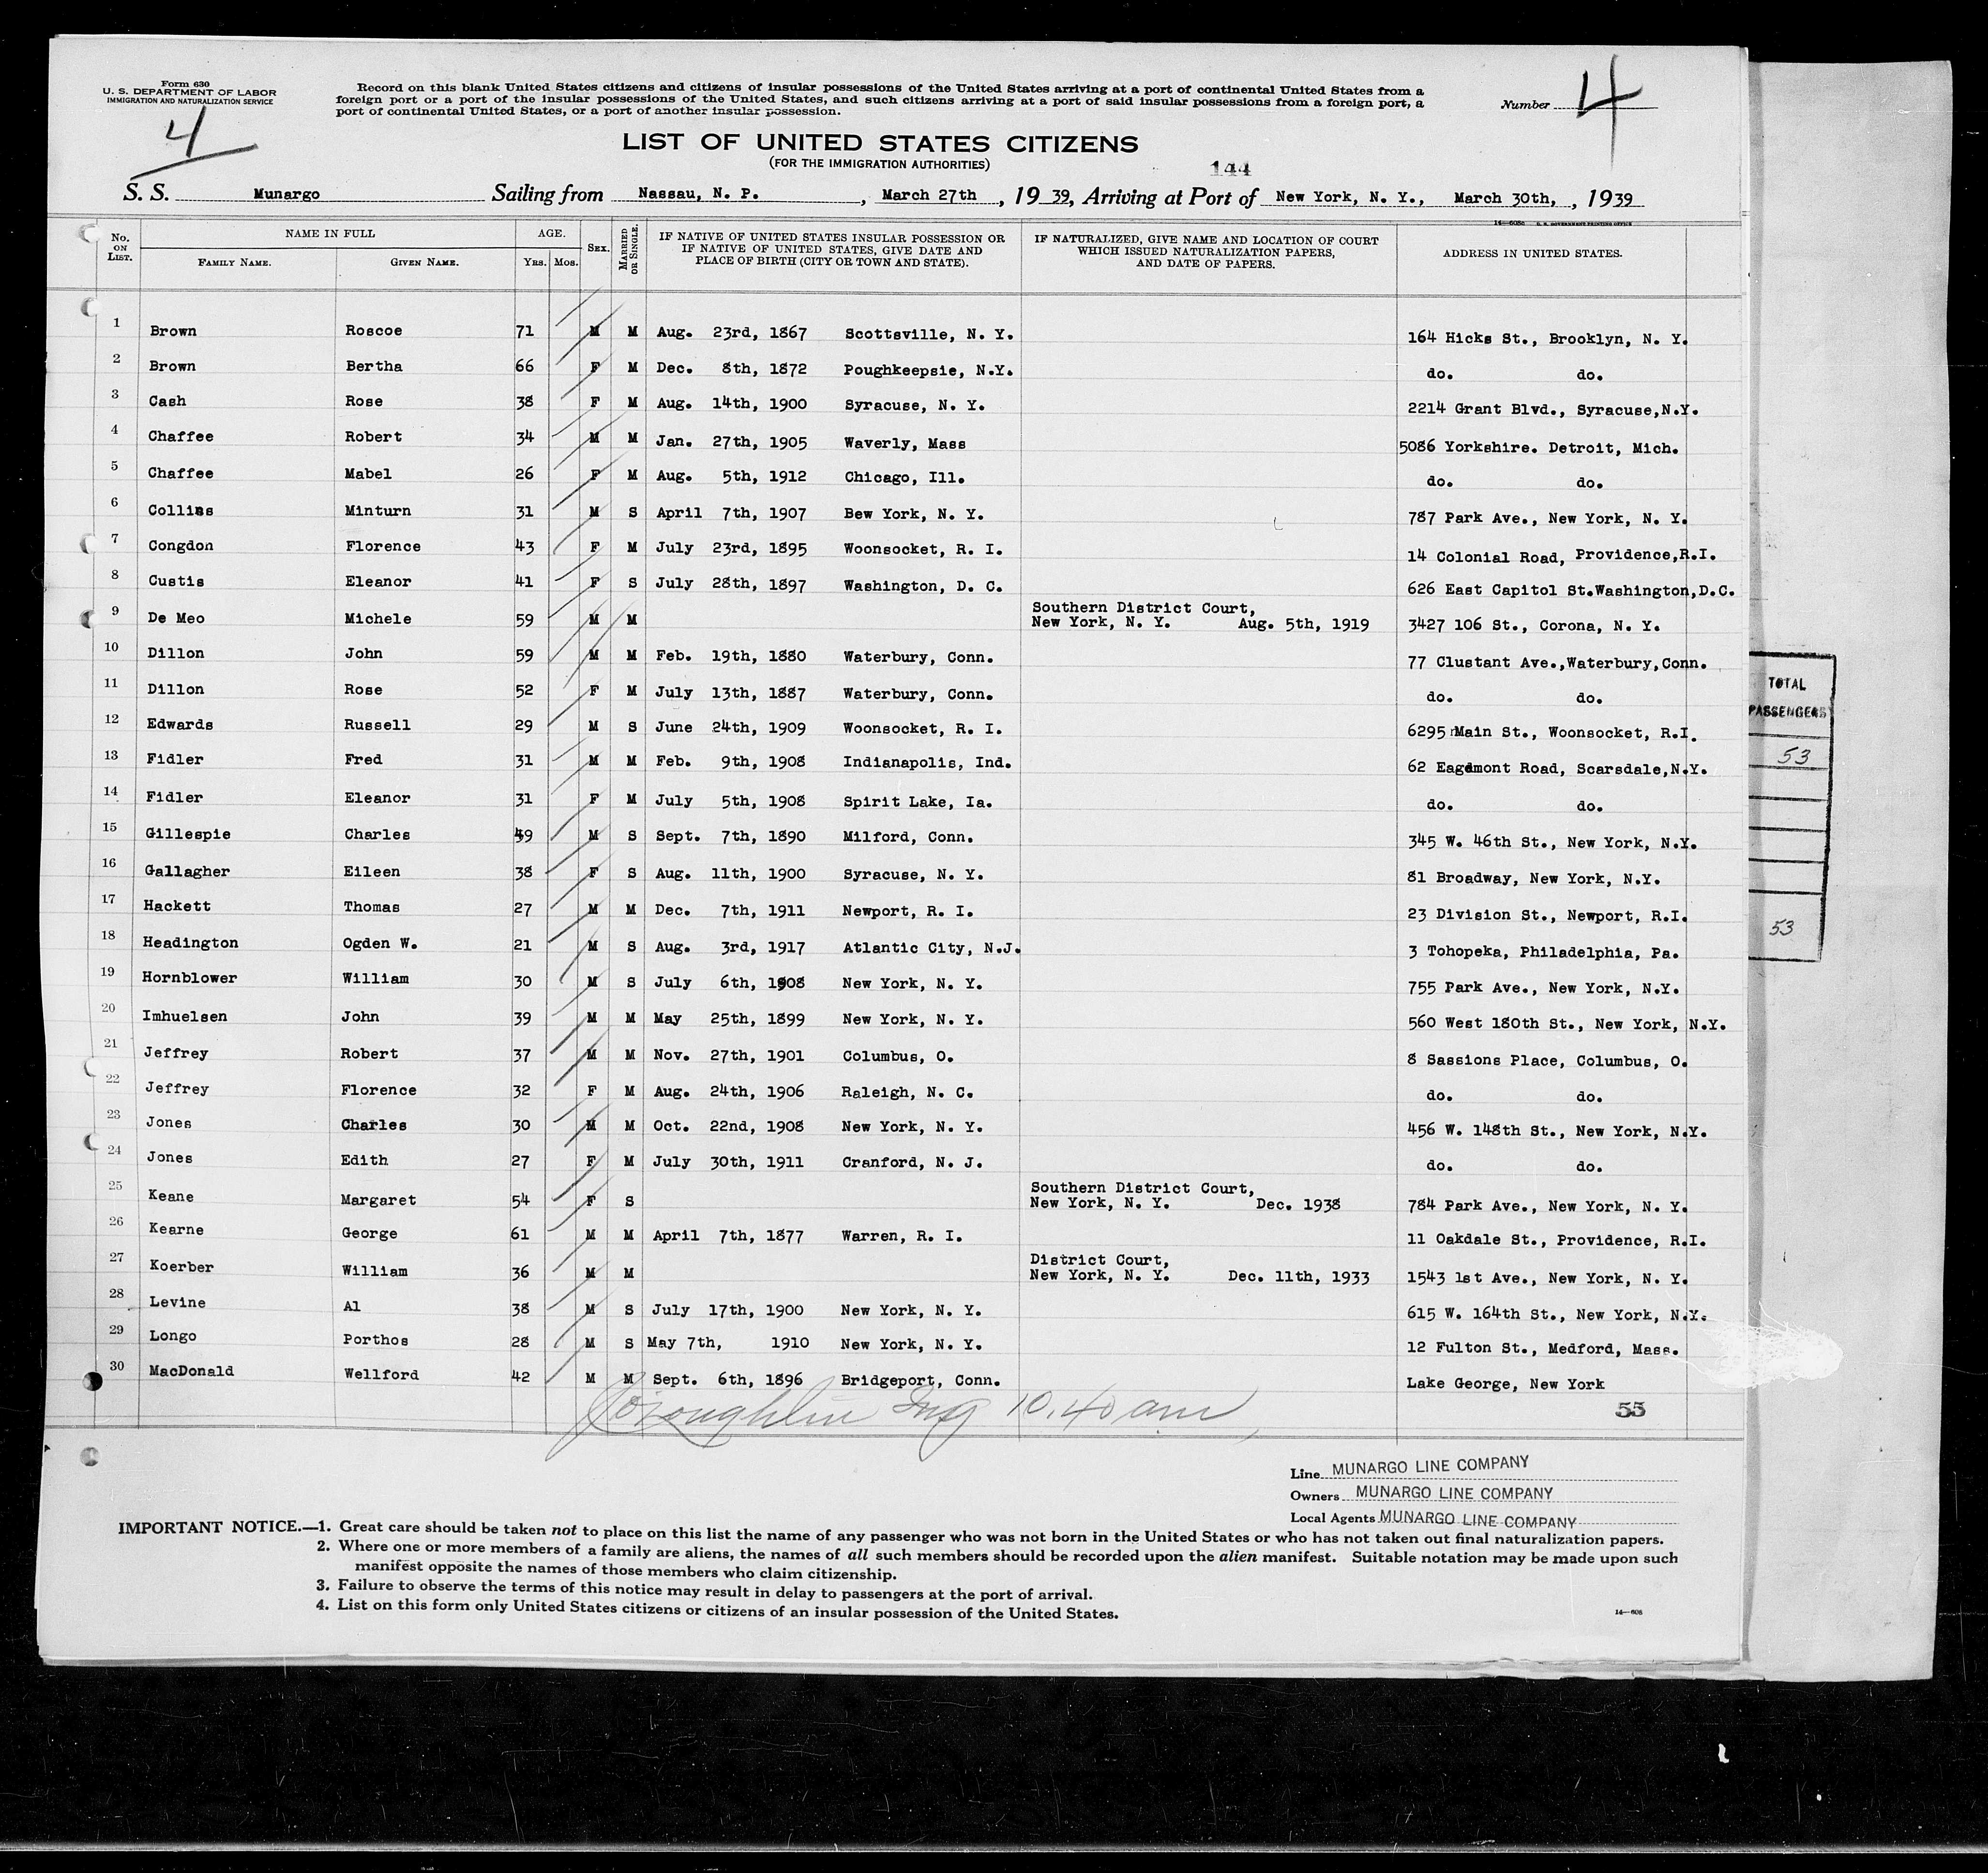 Form 630
U. S. DEPARTMENT OF LABOR
IMMIGRATION AND NATURALIZATION SERVICE
4
Record on this blank United States citizens and citizens of insular possessions of the United States arriving at a port of continental United States from a
foreign port or a port of the insular possessions of the United States, and such citizens arriving at a port of said insular possessions from a foreign port, a
port of continental United States, or a port of another insular possession.
Number 4
LIST OF UNITED STATES CITIZENS
(FOR THE IMMIGRATION AUTHORITIES)
144
S. S. Munargo Sailing from Nassau, N. P. , March 27th , 19 39, Arriving at Port of New York, N. Y., March 30th, , 1939
14—608c U. S. GOVERNMENT PRINTING OFFICE
No. ON LIST. NAME IN FULL FAMILY NAME. GIVEN NAME. AGE. YRS. MOS. SEX. MARRIED OR SINGLE. IF NATIVE OF UNITED STATES INSULAR POSSESSION OR IF NATIVE OF UNITED STATES, GIVE DATE AND PLACE OF BIRTH (CITY OR TOWN AND STATE). IF NATURALIZED, GIVE NAME AND LOCATION OF COURT WHICH ISSUED NATURALIZATION PAPERS, AND DATE OF PAPERS. ADDRESS IN UNITED STATES.
1 Brown Roscoe 71 M M Aug. 23rd, 1867 Scottsville, N. Y. 164 Hicks St., Brooklyn, N. Y.
2 Brown Bertha 66 F M Dec. 8th, 1872 Poughkeepsie, N.Y. do. do.
3 Cash Rose 38 F M Aug. 14th, 1900 Syracuse, N. Y. 2214 Grant Blvd., Syracuse,N.Y.
4 Chaffee Robert 34 M M Jan. 27th, 1905 Waverly, Mass 5086 Yorkshire. Detroit, Mich.
5 Chaffee Mabel 26 F M Aug. 5th, 1912 Chicago, Ill. do. do.
6 Collins Minturn 31 M S April 7th, 1907 Bew York, N. Y. 787 Park Ave., New York, N. Y.
7 Congdon Florence 43 F M July 23rd, 1895 Woonsocket, R. I. 14 Colonial Road, Providence,R.I.
8 Custis Eleanor 41 F S July 28th, 1897 Washington, D. C. 626 East Capitol St.Washington,D.C.
9 De Meo Michele 59 M M Southern District Court, New York, N. Y. Aug. 5th, 1919 3427 106 St., Corona, N. Y.
10 Dillon John 59 M M Feb. 19th, 1880 Waterbury, Conn. 77 Clustant Ave.,Waterbury,Conn.
11 Dillon Rose 52 F M July 13th, 1887 Waterbury, Conn. do. do.
12 Edwards Russell 29 M S June 24th, 1909 Woonsocket, R. I. 6295 Main St., Woonsocket, R.I.
13 Fidler Fred 31 M M Feb. 9th, 1908 Indianapolis, Ind. 62 Eagdmont Road, Scarsdale,N.Y.
14 Fidler Eleanor 31 F M July 5th, 1908 Spirit Lake, Ia. do. do.
15 Gillespie Charles 49 M S Sept. 7th, 1890 Milford, Conn. 345 W. 46th St., New York, N.Y.
16 Gallagher Eileen 38 F S Aug. 11th, 1900 Syracuse, N. Y. 81 Broadway, New York, N.Y.
17 Hackett Thomas 27 M M Dec. 7th, 1911 Newport, R. I. 23 Division St., Newport, R.I.
18 Headington Ogden W. 21 M S Aug. 3rd, 1917 Atlantic City, N.J. 3 Tohopeka, Philadelphia, Pa.
19 Hornblower William 30 M S July 6th, 1908 New York, N. Y. 755 Park Ave., New York, N.Y.
20 Imhuelsen John 39 M M May 25th, 1899 New York, N. Y. 560 West 180th St., New York, N.Y.
21 Jeffrey Robert 37 M M Nov. 27th, 1901 Columbus, O. 8 Sassions Place, Columbus, O.
22 Jeffrey Florence 32 F M Aug. 24th, 1906 Raleigh, N. C. do. do.
23 Jones Charles 30 M M Oct. 22nd, 1908 New York, N. Y. 456 W. 148th St., New York, N.Y.
24 Jones Edith 27 F M July 30th, 1911 Cranford, N. J. do. do.
25 Keane Margaret 54 F S Southern District Court, New York, N. Y. Dec. 1938 784 Park Ave., New York, N. Y.
26 Kearne George 61 M M April 7th, 1877 Warren, R. I. 11 Oakdale St., Providence, R.I.
27 Koerber William 36 M M District Court, New York, N. Y. Dec. 11th, 1933 1543 1st Ave., New York, N. Y.
28 Levine Al 38 M S July 17th, 1900 New York, N. Y. 615 W. 164th St., New York, N.Y.
29 Longo Porthos 28 M S May 7th, 1910 New York, N. Y. 12 Fulton St., Medford, Mass.
30 MacDonald Wellford 42 M M Sept. 6th, 1896 Bridgeport, Conn. Lake George, New York
10.40 am
55
TOTAL
PASSENGERS
53
53
Line MUNARGO LINE COMPANY
Owners MUNARGO LINE COMPANY
Local Agents MUNARGO LINE COMPANY
IMPORTANT NOTICE.—1. Great care should be taken not to place on this list the name of any passenger who was not born in the United States or who has not taken out final naturalization papers.
2. Where one or more members of a family are aliens, the names of all such members should be recorded upon the alien manifest. Suitable notation may be made upon such
manifest opposite the names of those members who claim citizenship.
3. Failure to observe the terms of this notice may result in delay to passengers at the port of arrival.
4. List on this form only United States citizens or citizens of an insular possession of the United States.
14—608